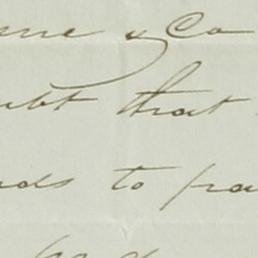 me & Co
ubt that
ds to pa